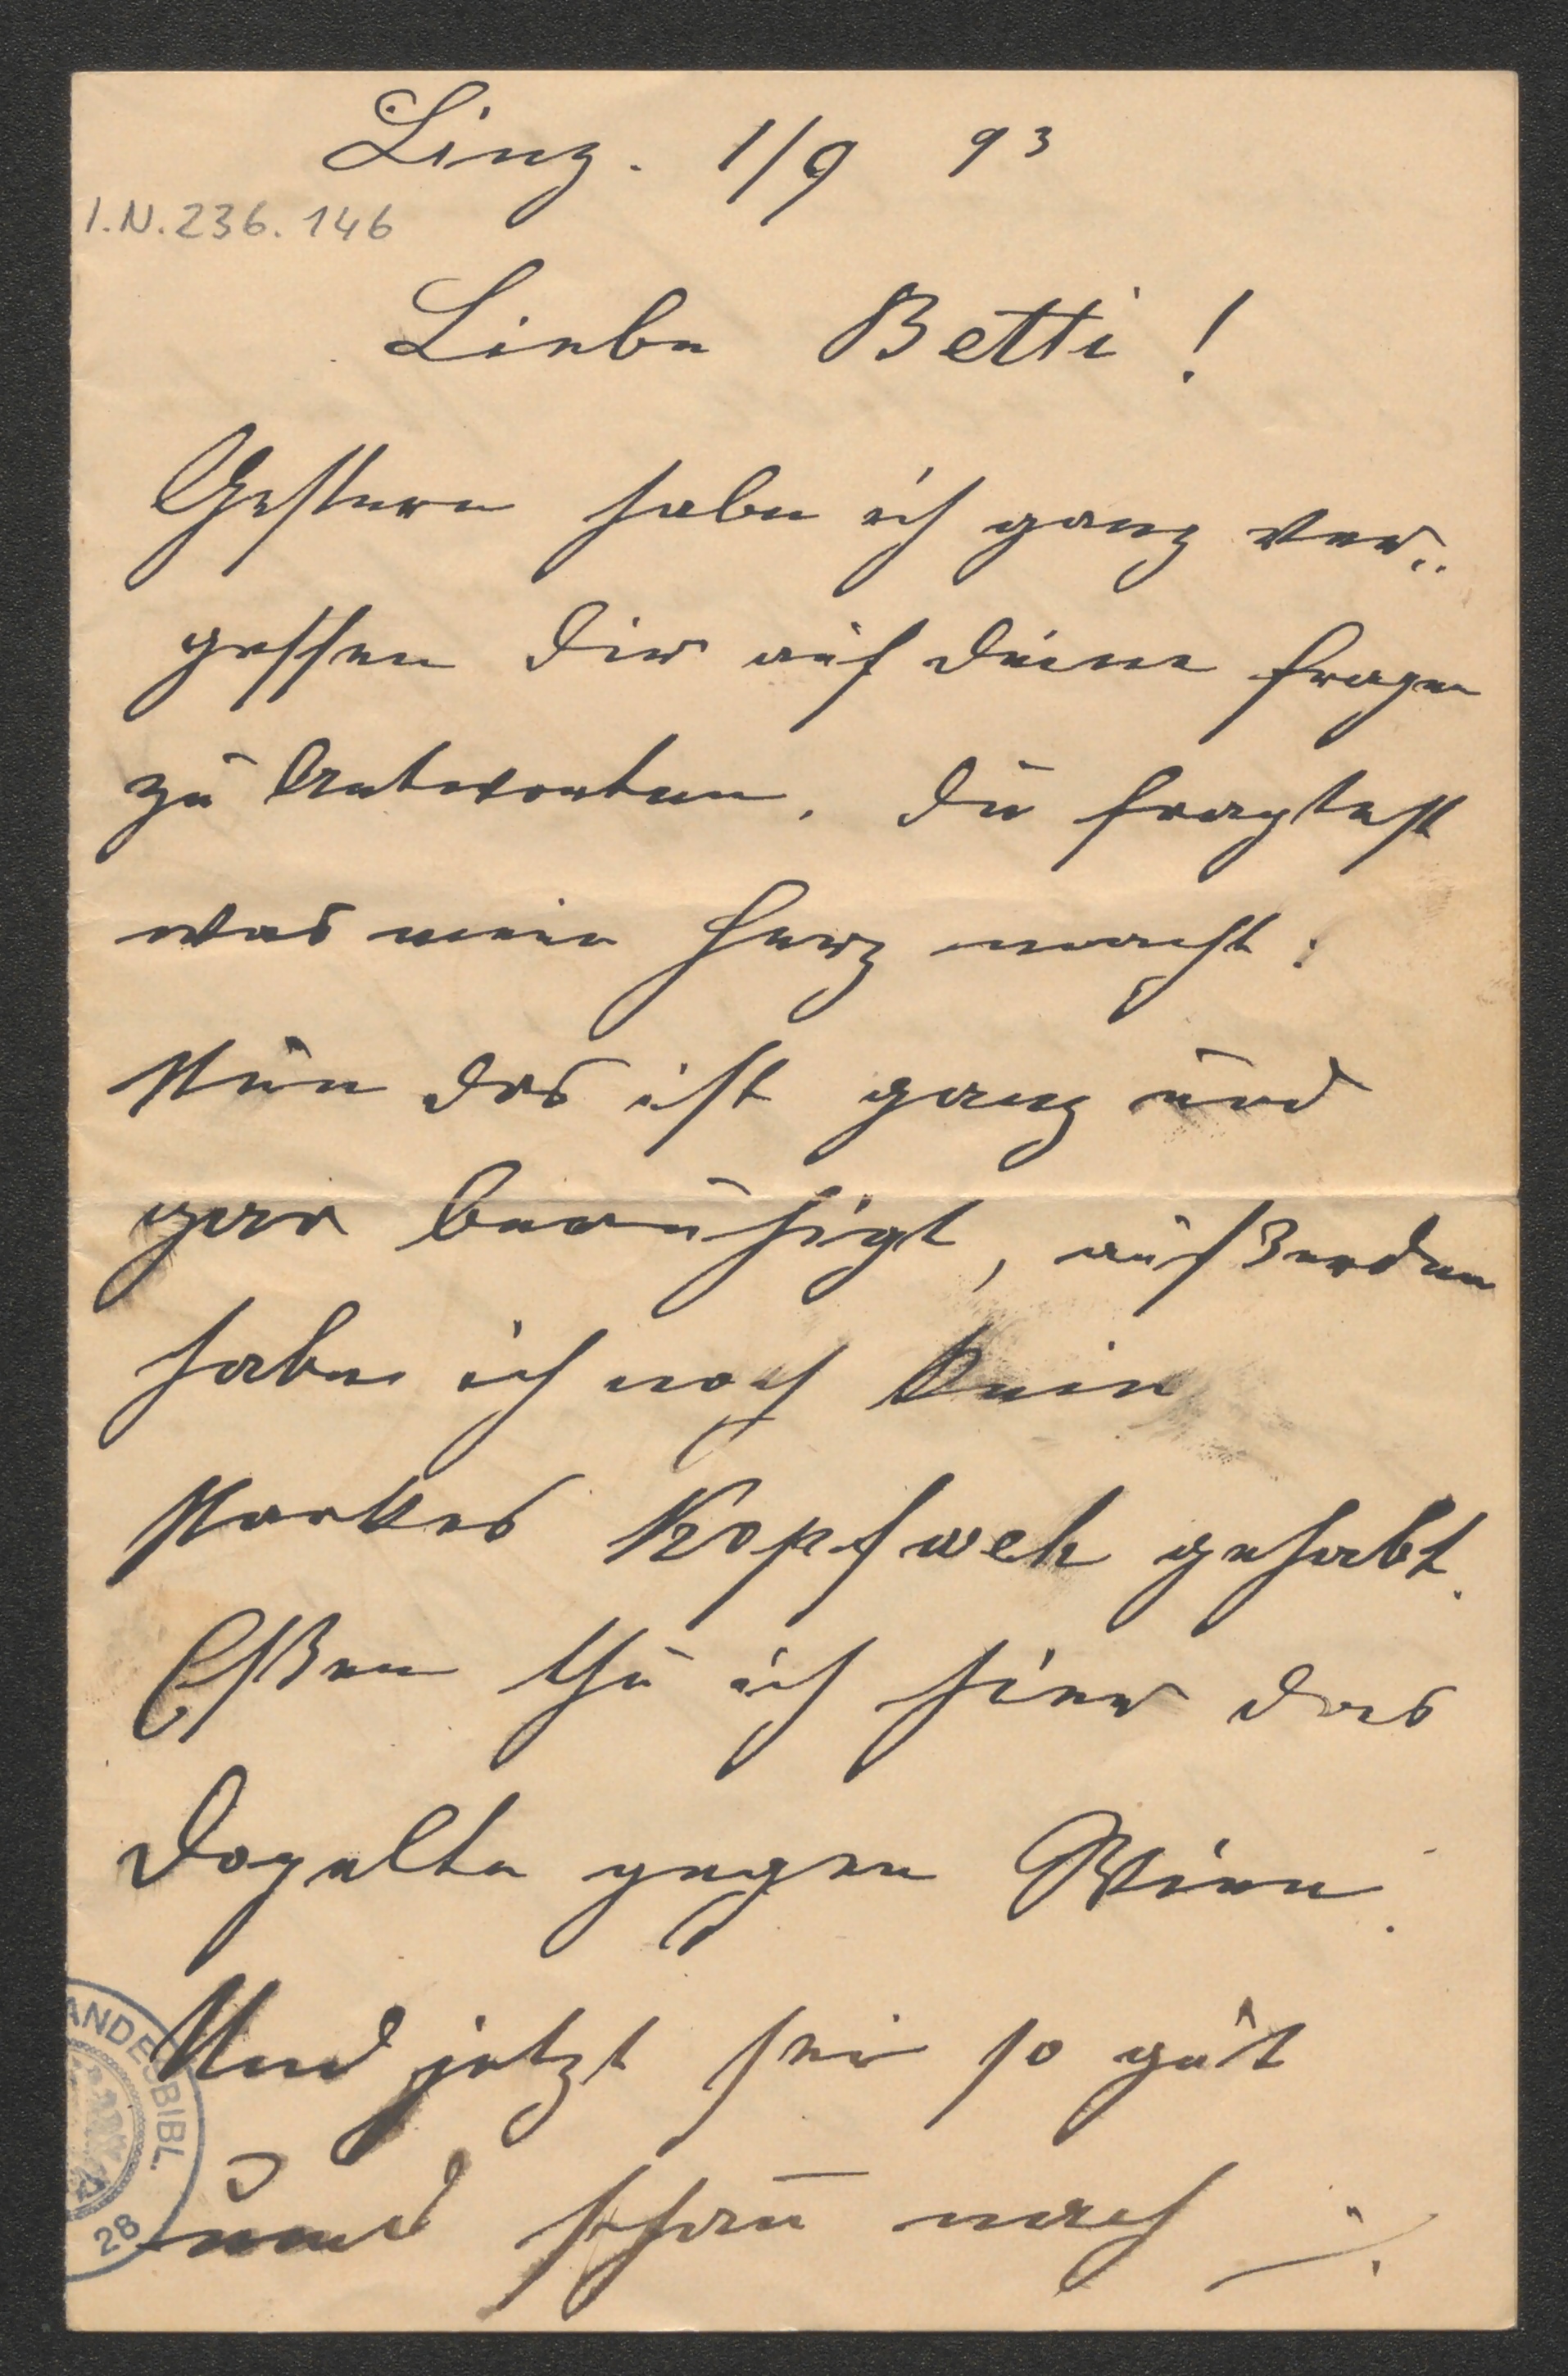 Linz. 1/9 93
I.N. 236.146
Liebe Betti!
Gestern habe ich ganz ver..
gessen Dir auf Deine Fragen
zu Antworten. Du fragtest
was mein Herz macht:
Nun das ist ganz und
gar beruhigt, aufßerdem
habe ich noch kein
starkes Kopfweh gehabt.
Eßen thu ich hier das
Dopelte gegen Wien.
Und jetzt sei so gut
und schau nach ./.
ANDESBIBL.
28